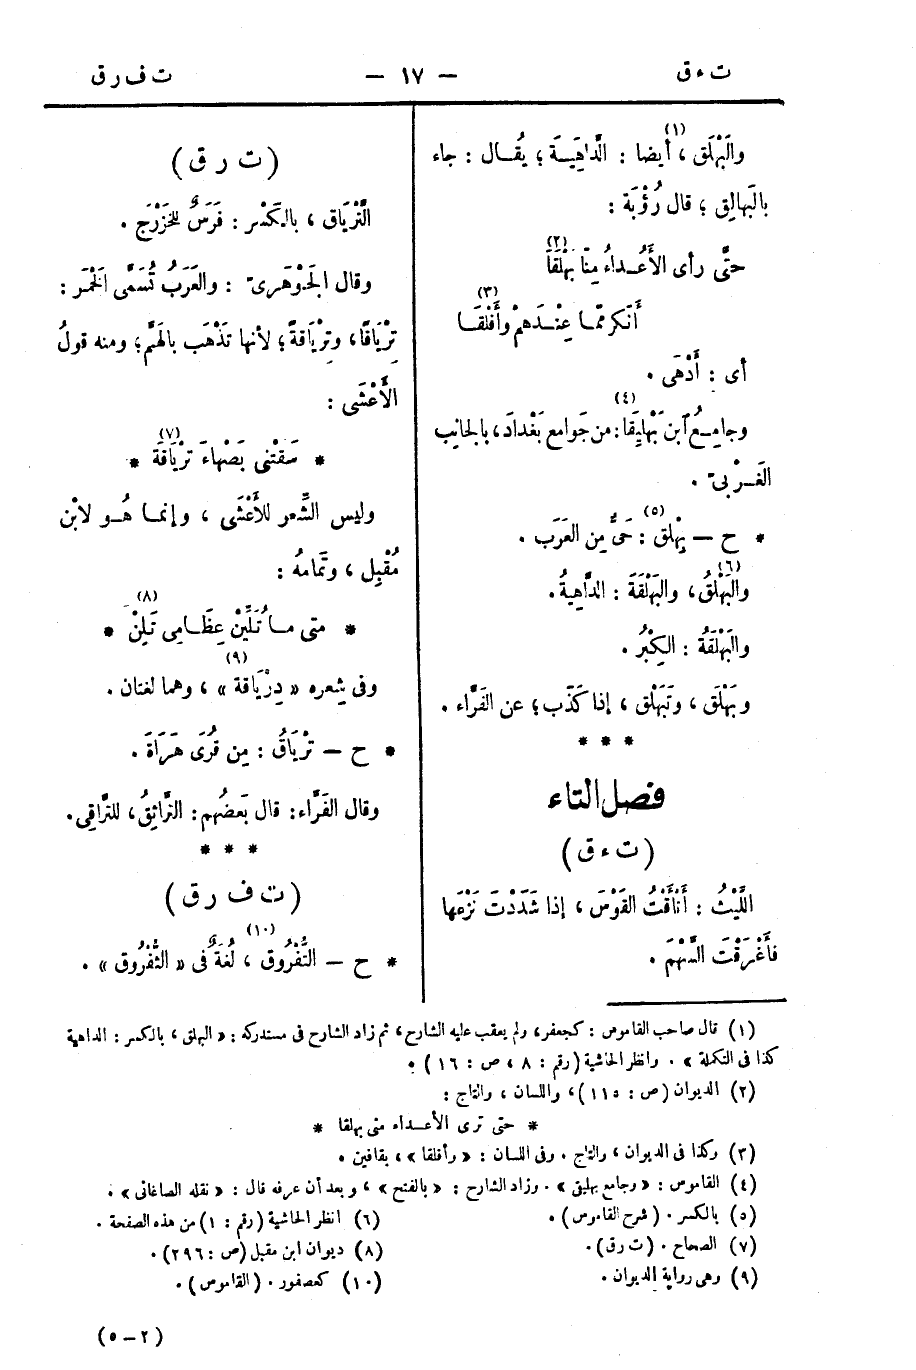 ت ء ق — ١٧ — ت ف ر ق
والبَهْلَق (١)، أيضا : الدَّاهِيَة ؛ يُقال : جاء
بالبَهالِق ؛ قال رُؤْبَة :
حتَّى رأى الأَعْداءُ مِنَّا بَهْلَقَا (٢)
أَنْكَرَ مَمّا عِنْدَهمْ وأَفْلَقَا (٣)
أى : أَدْهَى .
وجامِعُ ابن بَهْلِيقَا (٤) : من جَوامع بَغْدادَ، بالجانِب
الغَرْبىّ .
* ح — بِهْلق (٥) : حَىٌّ مِن العَرَب .
والبَهْلَقُ (٦)، والبَهْلَقَةُ : الدَّاهِيةُ .
والبَهْلَقَةُ : الكِبْرُ .
وبَهْلَق ، وتَبَهْلَق ، إذا كَذَب ؛ عن الفَرَّاء .
* * *
فصل التاء
(ت ء ق)
اللَّيْثُ : أَتْأَقْتُ القَوْسَ ، إذا شَدَدْتَ نَزْعَها
فأَغْرَقْتَ السَّهْمَ .
(ت ر ق)
التِّرْيَاق ، بالكَسْر : فَرَسٌ للخَزْرَج .
وقال الجَوْهَرىّ : والعَرَبُ تُسَمَّى الخَمْرَ :
تِرْيَاقًا، وتِرْيَاقَةً؛ لأنها تَذْهَب بالهَمّ؛ ومنه قولُ
الأَعْشَى :
* سَقَتْنى بصَهْباءَ تِرْيَاقَةٍ (٧) *
وليس الشِّعر للأَعْشَى ، وإنما هُو لابْن
مُقْبِل ، وتَمامهُ :
* متى ما تُلَيِّنْ عِظَامِى تَلِنْ (٨) *
وفى شِعره « دِرْيَاقة (٩) » ، وهما لغتان .
* ح — تِرْيَاقُ : مِن قُرَى هَرَاةَ .
وقال الفَرَّاء: قال بَعضُهم : التَّرائِقُ ، للتَّراقِى .
* * *
(ت ف ر ق)
* ح — التُّفْرُوق (١٠) ، لُغَةٌ فى « الثُّفْرُوق » .
(١) قال صاحب القاموس : كجعفر، ولم يعقب عليه الشارح، ثم زاد الشارح فى مستدركه : « البهلق ، بالكسر : الداهية
كذا فى التكملة » . وانظر الحاشية (رقم : ٨ ، ص : ١٦) .
(٢) الديوان (ص : ١١٥)، واللسان ، والتاج :
* حتى ترى الأعداء منى بهلقا *
(٣) وكذا فى الديوان ، والتاج . وفى اللسان : « وأقلقا » ، بقافين .
(٤) القاموس : « وجامع بهليق » . وزاد الشارح : « بالفتح » ، وبعد أن عرفه قال : « نقله الصاغانى » .
(٥) بالكسر . (شرح القاموس) . (٦) انظر الحاشية (رقم : ١) من هذه الصفحة .
(٧) الصحاح . (ت رق) . (٨) ديوان ابن مقبل (ص : ٢٩٦) .
(٩) وهى رواية الديوان . (١٠) كعصفور . (القاموس) .
(٢ – ٥)